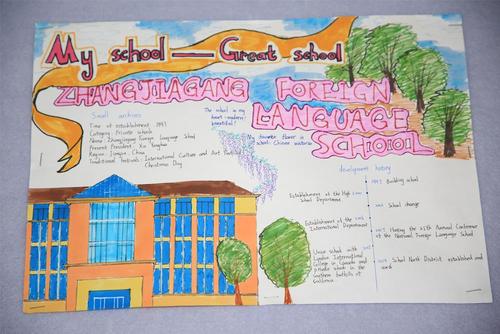 My school — Great school
ZHANGJIAGANG FOREIGN
LANGUAGE
SCHOOOL
Small archives
Time of establishment 1997
Category Private schools
Name: Zhangjiagang Foreign Language School
Present President: Xu
Region: Jiangsu China
Traditional Festivals: International Culture and Art Festival
Christmas Day
The school in my
heart - modern
beautiful!
My favourite flower in
school: Chinese wisteria
development history
1997 Building school
Establishment of the High
School Department
School change
Establishment of the
International Department
Hosting the 25th Annual Conference
of the National Foreign Language School
Union school with
London International
College in Canada and
private schools in the
southern foothills of
California
School North District established and
used